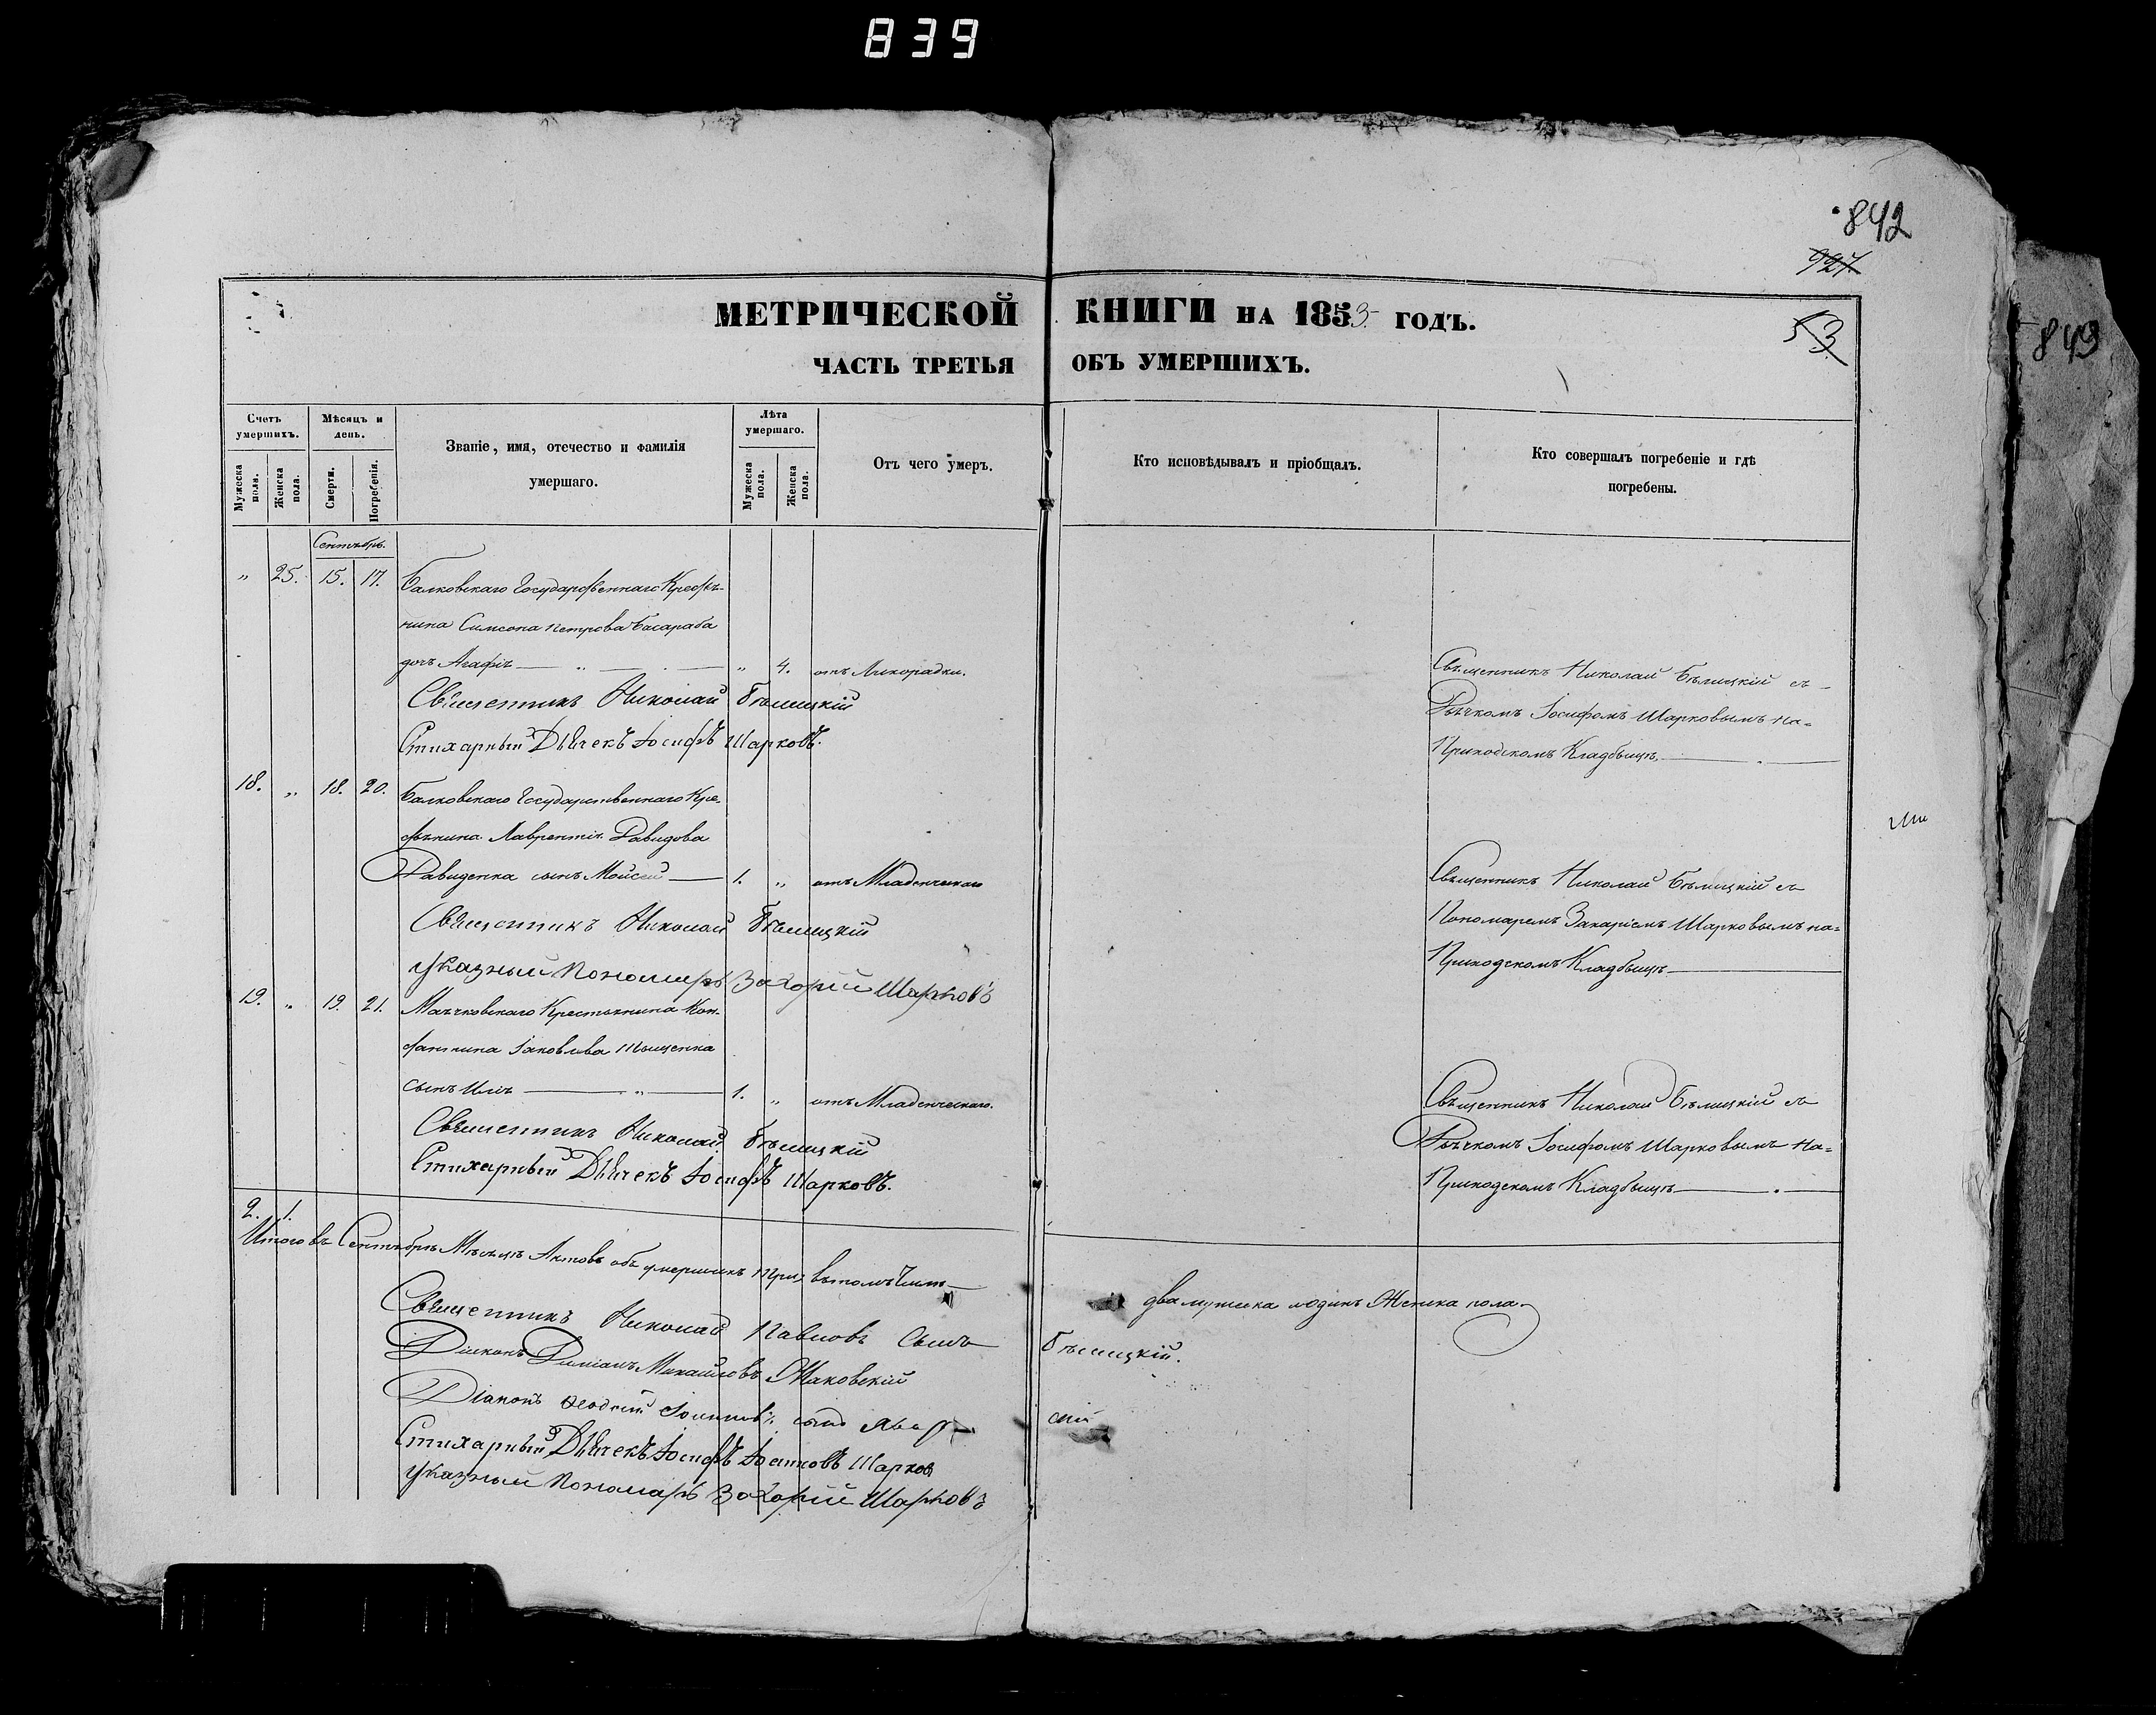 839
842
927
849
МЕТРИЧЕСКОЙ КНИГИ НА 1853 ГОДЪ.
53
ЧАСТЬ ТРЕТЬЯ ОБЪ УМЕРШИХЪ.
Счетъ умершихъ.
Мужеска пола.
Женска пола.
Мѣсяцъ и день.
Смерти.
Погребенія.
Званіе, имя, отечество и фамилія
умершаго.
Лѣта умершаго.
Мужеска пола.
Женска пола.
Отъ чего умеръ.
Кто исповѣдывалъ и пріобщалъ.
Кто совершалъ погребеніе и гдѣ
погребены.
Сентябрь.
„ 25. 15. 17. Балковскаго Государственнаго Крестья-
нина Симеона Петрова Басараба
дочь Агафія „ 4. отъ Лихорадки.
Священникъ Николай Бѣлицкій
Стихарный Дьячекъ Іосифъ Шарковъ.
Священникъ Николай Бѣлицкій съ
Дьячкомъ Іосифомъ Шарковымъ на-
Приходскомъ Кладбищѣ.
18. „ 18. 20. Балковскаго Государственнаго Кре-
стьянина Лаврентія Давидова
Давиденка сынъ Мойсей 1. „ отъ Младенческаго
Священникъ Николай Бѣлицкій
Указный Пономарь Захарій Шарковъ
Священникъ Николай Бѣлицкій съ
Пономаремъ Захаріемъ Шарковымъ на-
Приходскомъ Кладбищѣ
19. „ 19. 21. Крестьянина Кон-
стантина Іаковлева Тищенка
сынъ Илія 1. „ отъ Младенческаго.
Священникъ Николай Бѣлицкій
Стихарный Дьячекъ Іосифъ Шарковъ.
Священникъ Николай Бѣлицкій съ
Дьячкомъ Іосифомъ Шарковымъ на-
Приходскомъ Кладбищѣ
2. 1.
Итого въ Сентябрѣ Мѣсяцѣ Актовъ объ умершихъ три, въ томъ числѣ
два мужска и одинъ Женска пола.
Священникъ Николай Павловъ Сынъ Бѣлицкій.
Діаконъ Даміанъ Михайловъ Маковскій
Діаконъ сынъ
Стихарный Дьячекъ Іосифъ Шарковъ
Указный Пономарь Захарій Шарковъ